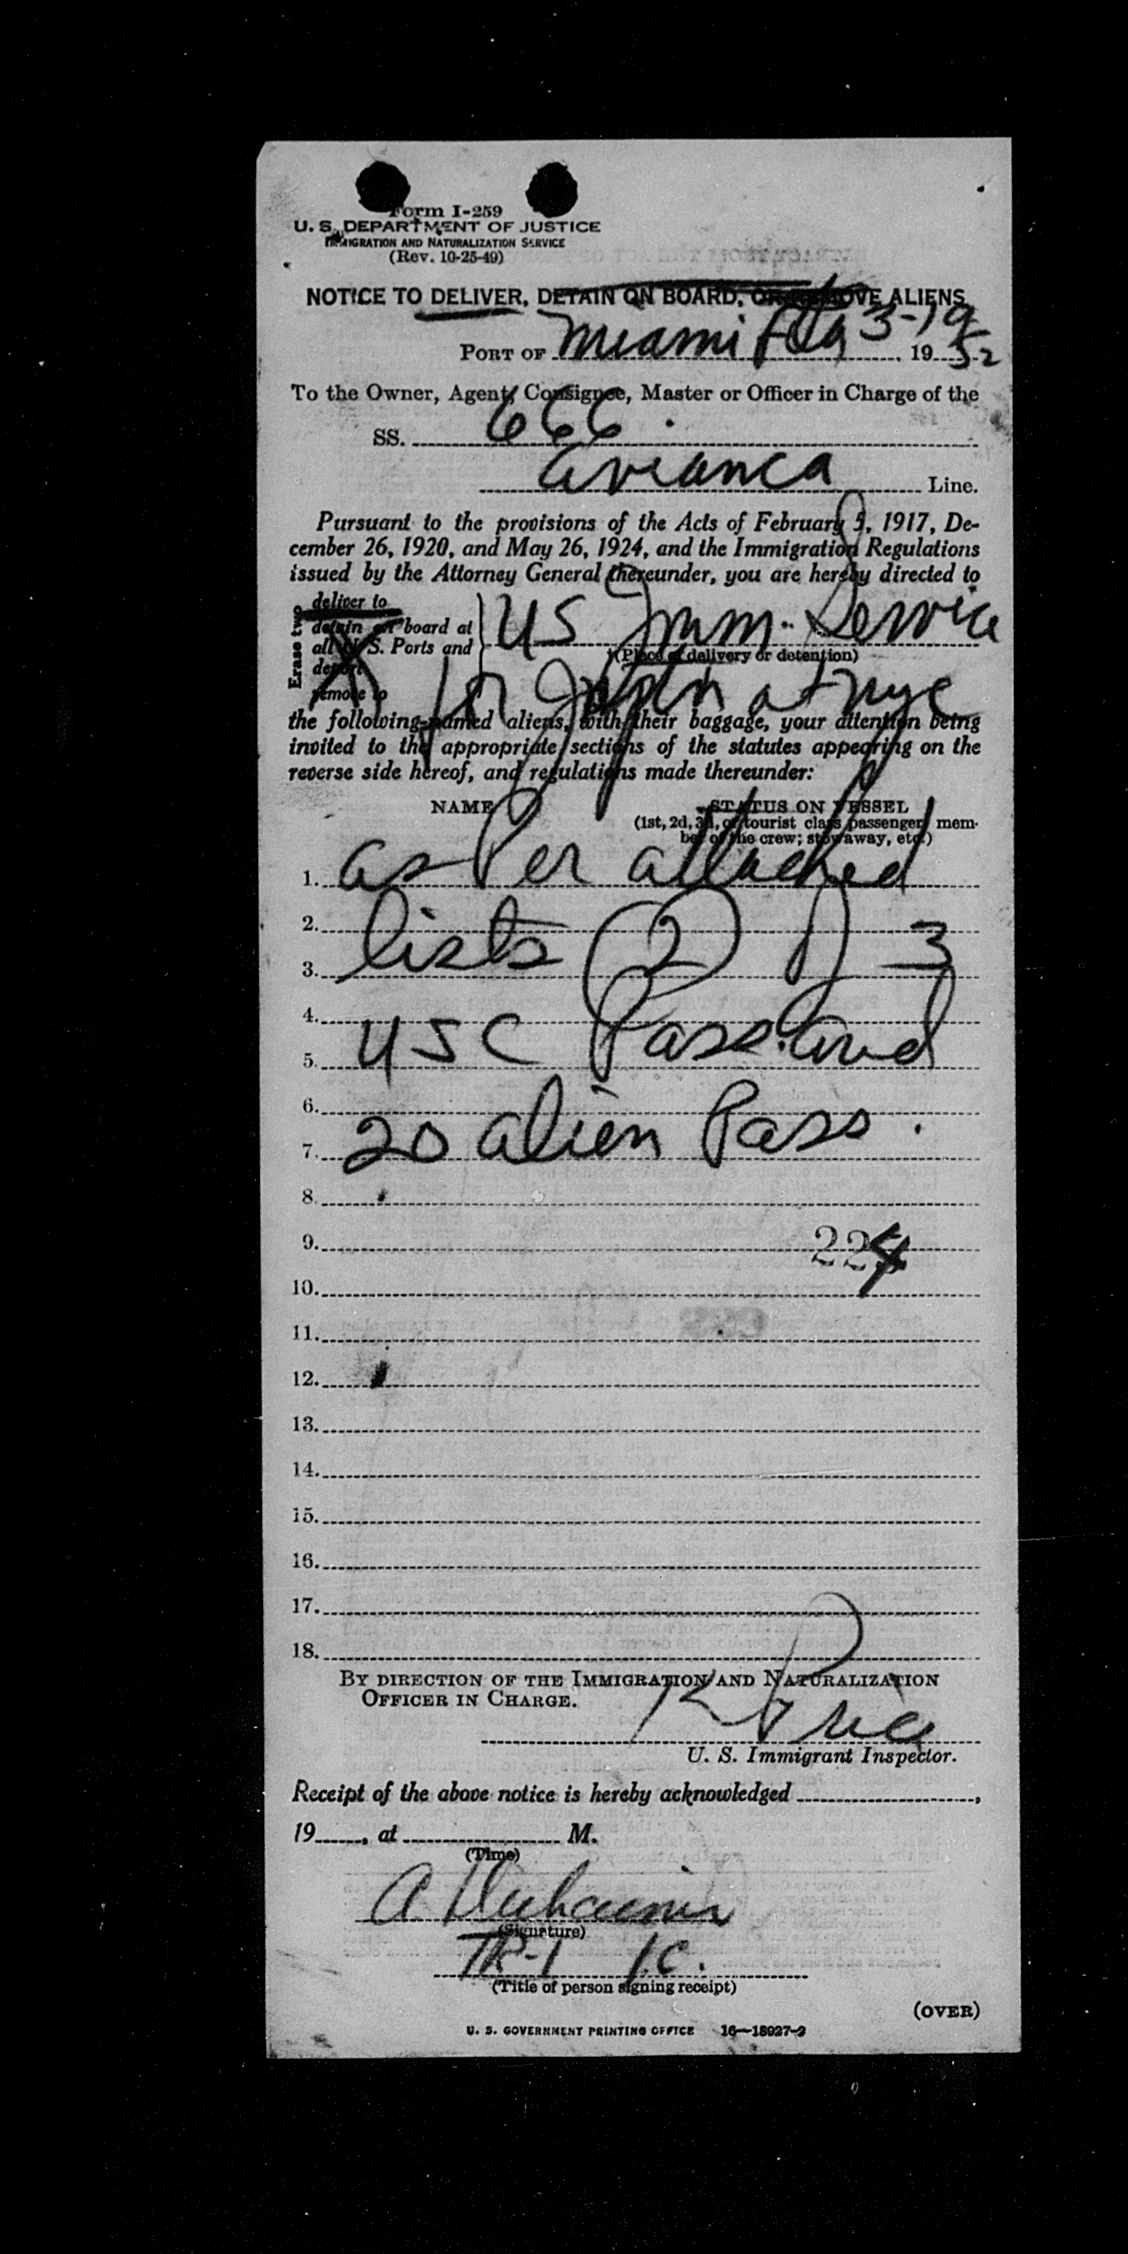 Form I-259
U. S. DEPARTMENT OF JUSTICE
IMMIGRATION AND NATURALIZATION SERVICE
(Rev. 10-25-49)
NOTICE TO DELIVER, DETAIN ON BOARD, OR REMOVE ALIENS
PORT OF Miami Fla 3-19, 1952
To the Owner, Agent, Consignee, Master or Officer in Charge of the
SS. 666
Avianca Line.
Pursuant to the provisions of the Acts of February 5, 1917, De-
cember 26, 1920, and May 26, 1924, and the Immigration Regulations
issued by the Attorney General thereunder, you are hereby directed to
Erase two
deliver to
detain on board at
all U. S. Ports and
deport
remove to
US Imm. Service
(Place of delivery or detention)
for at nyc
the following-named aliens, with their baggage, your attention being
invited to the appropriate sections of the statutes appearing on the
reverse side hereof, and regulations made thereunder:
NAME STATUS ON VESSEL
(1st, 2d, 3d, or tourist class passenger, mem-
ber of the crew; stowaway, etc.)
1. as Per attached
2.
3. lists (2) 3
4.
5. USC Pass. and
6.
7. 20 alien Pass.
8.
9. 224
10.
11.
12.
13.
14.
15.
16.
17.
18.
BY DIRECTION OF THE IMMIGRATION AND NATURALIZATION
OFFICER IN CHARGE.
K Price
U. S. Immigrant Inspector.
Receipt of the above notice is hereby acknowledged ,
19 , at M.
(Time)
A
(Signature)
TR-1 I.C.
(Title of person signing receipt)
(OVER)
U. S. GOVERNMENT PRINTING OFFICE 16—18027-2